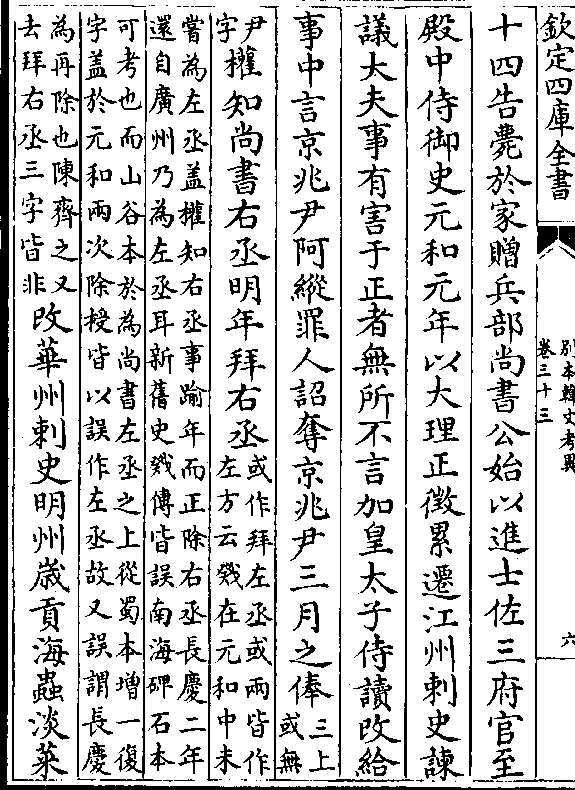 欽定四庫全書
別本韓文考異
卷三十三
六
十四告薨於家贈兵部尚書公始以進士佐三府官至
殿中侍御史元和元年以大理正徵累遷江州刺史諫
議大夫事有害于正者無所不言加皇太子侍讀改給
事中言京兆尹阿縱罪人詔奪京兆尹三月之俸
三上
或無
尹
字
權知尚書右丞明年拜右丞
或作拜左丞或兩皆作
左方云戣在元和中未
嘗為左丞盖權知右丞事踰年而正除右丞長慶二年
還自廣州乃為左丞耳新舊史戣傳皆誤南海碑石本
可考也而山谷本於為尚書左丞之上從蜀本增一復
字盖於元和兩次除授皆以誤作左丞故又誤謂長慶
為再除也陳齊之又
去拜右丞三字皆非
改華州刺史明州歲貢海蟲淡菜